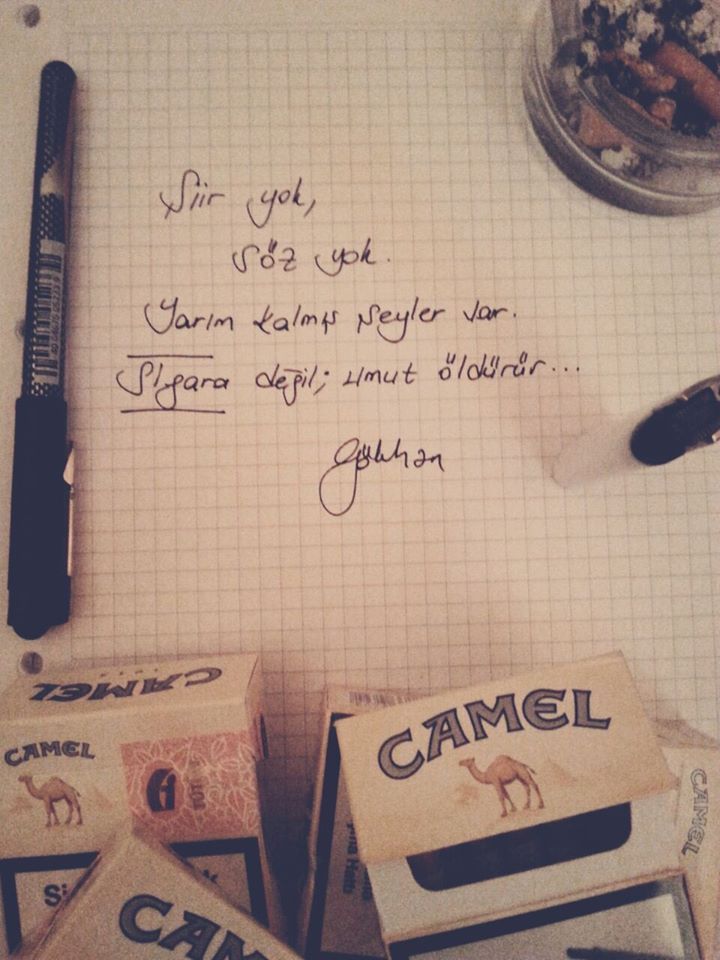 Şiir yok,
Söz yok.
Yarım kalmış şeyler var.
Sigara değil; umut öldürür...
Gökhan
CAMEL
CAMEL
CAMEL
CAMEL
CAM